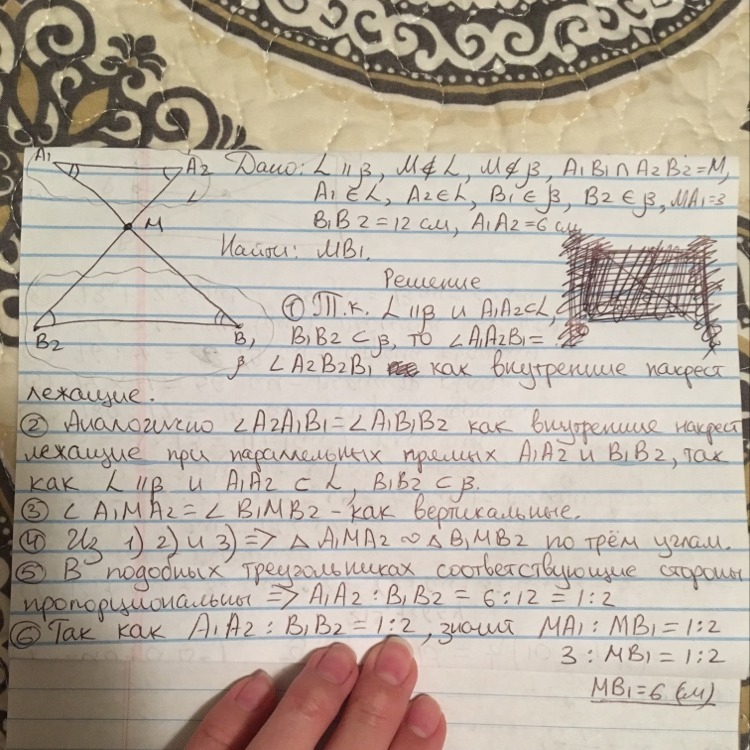 A1
A2
M
L
B2
B1
β
Дано: L || β, M∉L, M∉β, A1B1∩A2B2=M,
A1∈L, A2∈L, B1∈β, B2∈β, MA1=3
B1B2=12 см, A1A2=6 см
Найти: MB1.
Решение
① Т.к. L||β и A1A2⊂L,
B1B2⊂β, то ∠A1A2B1=
∠A2B2B1 как внутренние накрест
лежащие.
② Аналогично ∠A2A1B1=∠A1B1B2 как внутренние накрест
лежащие при параллельных прямых A1A2 и B1B2, так
как L||β и A1A2⊂L, B1B2⊂β.
③ ∠A1MA2=∠B1MB2-как вертикальные.
④ Из 1) 2) и 3) => △A1MA2∾△B1MB2 по трём углам.
⑤ В подобных треугольниках соответствующие стороны
пропорциональны => A1A2:B1B2=6:12=1:2
⑥ Так как A1A2:B1B2=1:2, значит MA1:MB1=1:2
3:MB1=1:2
MB1=6 (см)